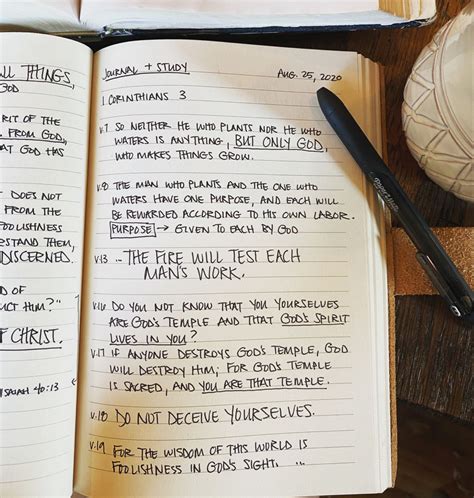 ALL THINGS,
GOD
RIT OF THE
FROM GOD,
AT GOD HAS
DOES NOT
FROM THE
FOOLISHNESS
STAND THEM,
DISCERNED.
D OF
UCT HIM?"
OF CHRIST.
ISAIAH 40:13
JOURNAL + STUDY
AUG. 25, 2020
1 CORINTHIANS 3
V.7 SO NEITHER HE WHO PLANTS NOR HE WHO
WATERS IS ANYTHING, BUT ONLY GOD,
WHO MAKES THINGS GROW.
V.8 THE MAN WHO PLANTS AND THE ONE WHO
WATERS HAVE ONE PURPOSE, AND EACH WILL
BE REWARDED ACCORDING TO HIS OWN LABOR.
PURPOSE → GIVEN TO EACH BY GOD
V.13 ... THE FIRE WILL TEST EACH
MAN'S WORK.
V.16 DO YOU NOT KNOW THAT YOU YOURSELVES
ARE GOD'S TEMPLE AND THAT GOD'S SPIRIT
LIVES IN YOU?
V.17 IF ANYONE DESTROYS GOD'S TEMPLE, GOD
WILL DESTROY HIM; FOR GOD'S TEMPLE
IS SACRED, AND YOU ARE THAT TEMPLE.
V.18 DO NOT DECEIVE YOURSELVES.
V.19 FOR THE WISDOM OF THIS WORLD IS
FOOLISHNESS IN GOD'S SIGHT. ...